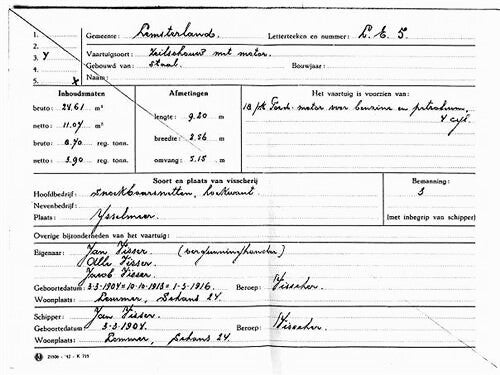 1.
2.
3. y
4.
5. x
Gemeente: Lemsterland. Letterteeken en nummer: L.E. 5.
Vaartuigsoort: Zeilschouw met motor.
Gebouwd van staal. Bouwjaar:
Naam:
Inhoudsmaten
bruto: 24.61 m³
netto: 11.04 m³
bruto: 8.70 reg. tonn.
netto: 3.90 reg. tonn.
Afmetingen
lengte: 9.20 m
breedte: 2.56 m
omvang: 5.15 m
Het vaartuig is voorzien van:
18 pk Ford motor voor benzine en petroleum,
4 cyl.
Soort en plaats van visscherij
Hoofdbedrijf: Snoekbaarsnetten, hoekwant
Nevenbedrijf:
Plaats: IJsselmeer.
Bemanning:
3
(met inbegrip van schipper)
Overige bijzonderheden van het vaartuig:
Eigenaar: Jan Visser. (vergunninghouder)
Alle Visser.
Jacob Visser.
Geboortedatum 3-3-1904 = 10-10-1913 = 1-5-1916. Beroep: Visscher
Woonplaats: Lemmer, Schans 24.
Schipper: Jan Visser.
Geboortedatum 3-3-1904. Beroep: Visscher.
Woonplaats: Lemmer, Schans 24.
21506 - '42 - K 715